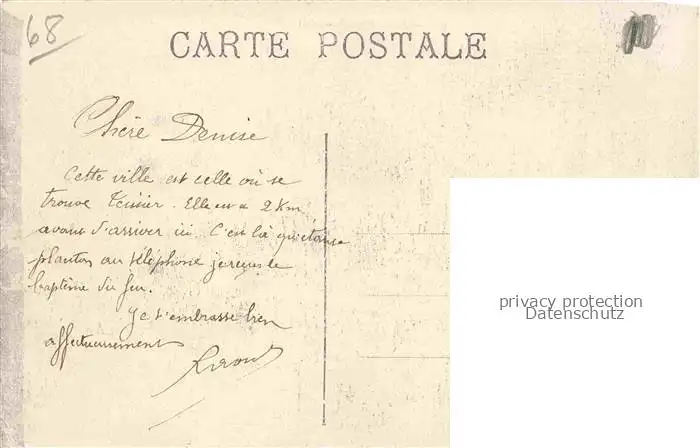 68
CARTE POSTALE
Chère Denise
Cette ville est celle où se
trouve Elle est à 2 Km
avant d'arriver ici. C'est là qu'étant
planton au téléphone je reçus le
baptême du feu.
Je t'embrasse bien
affectueusement
privacy protection
Datenschutz